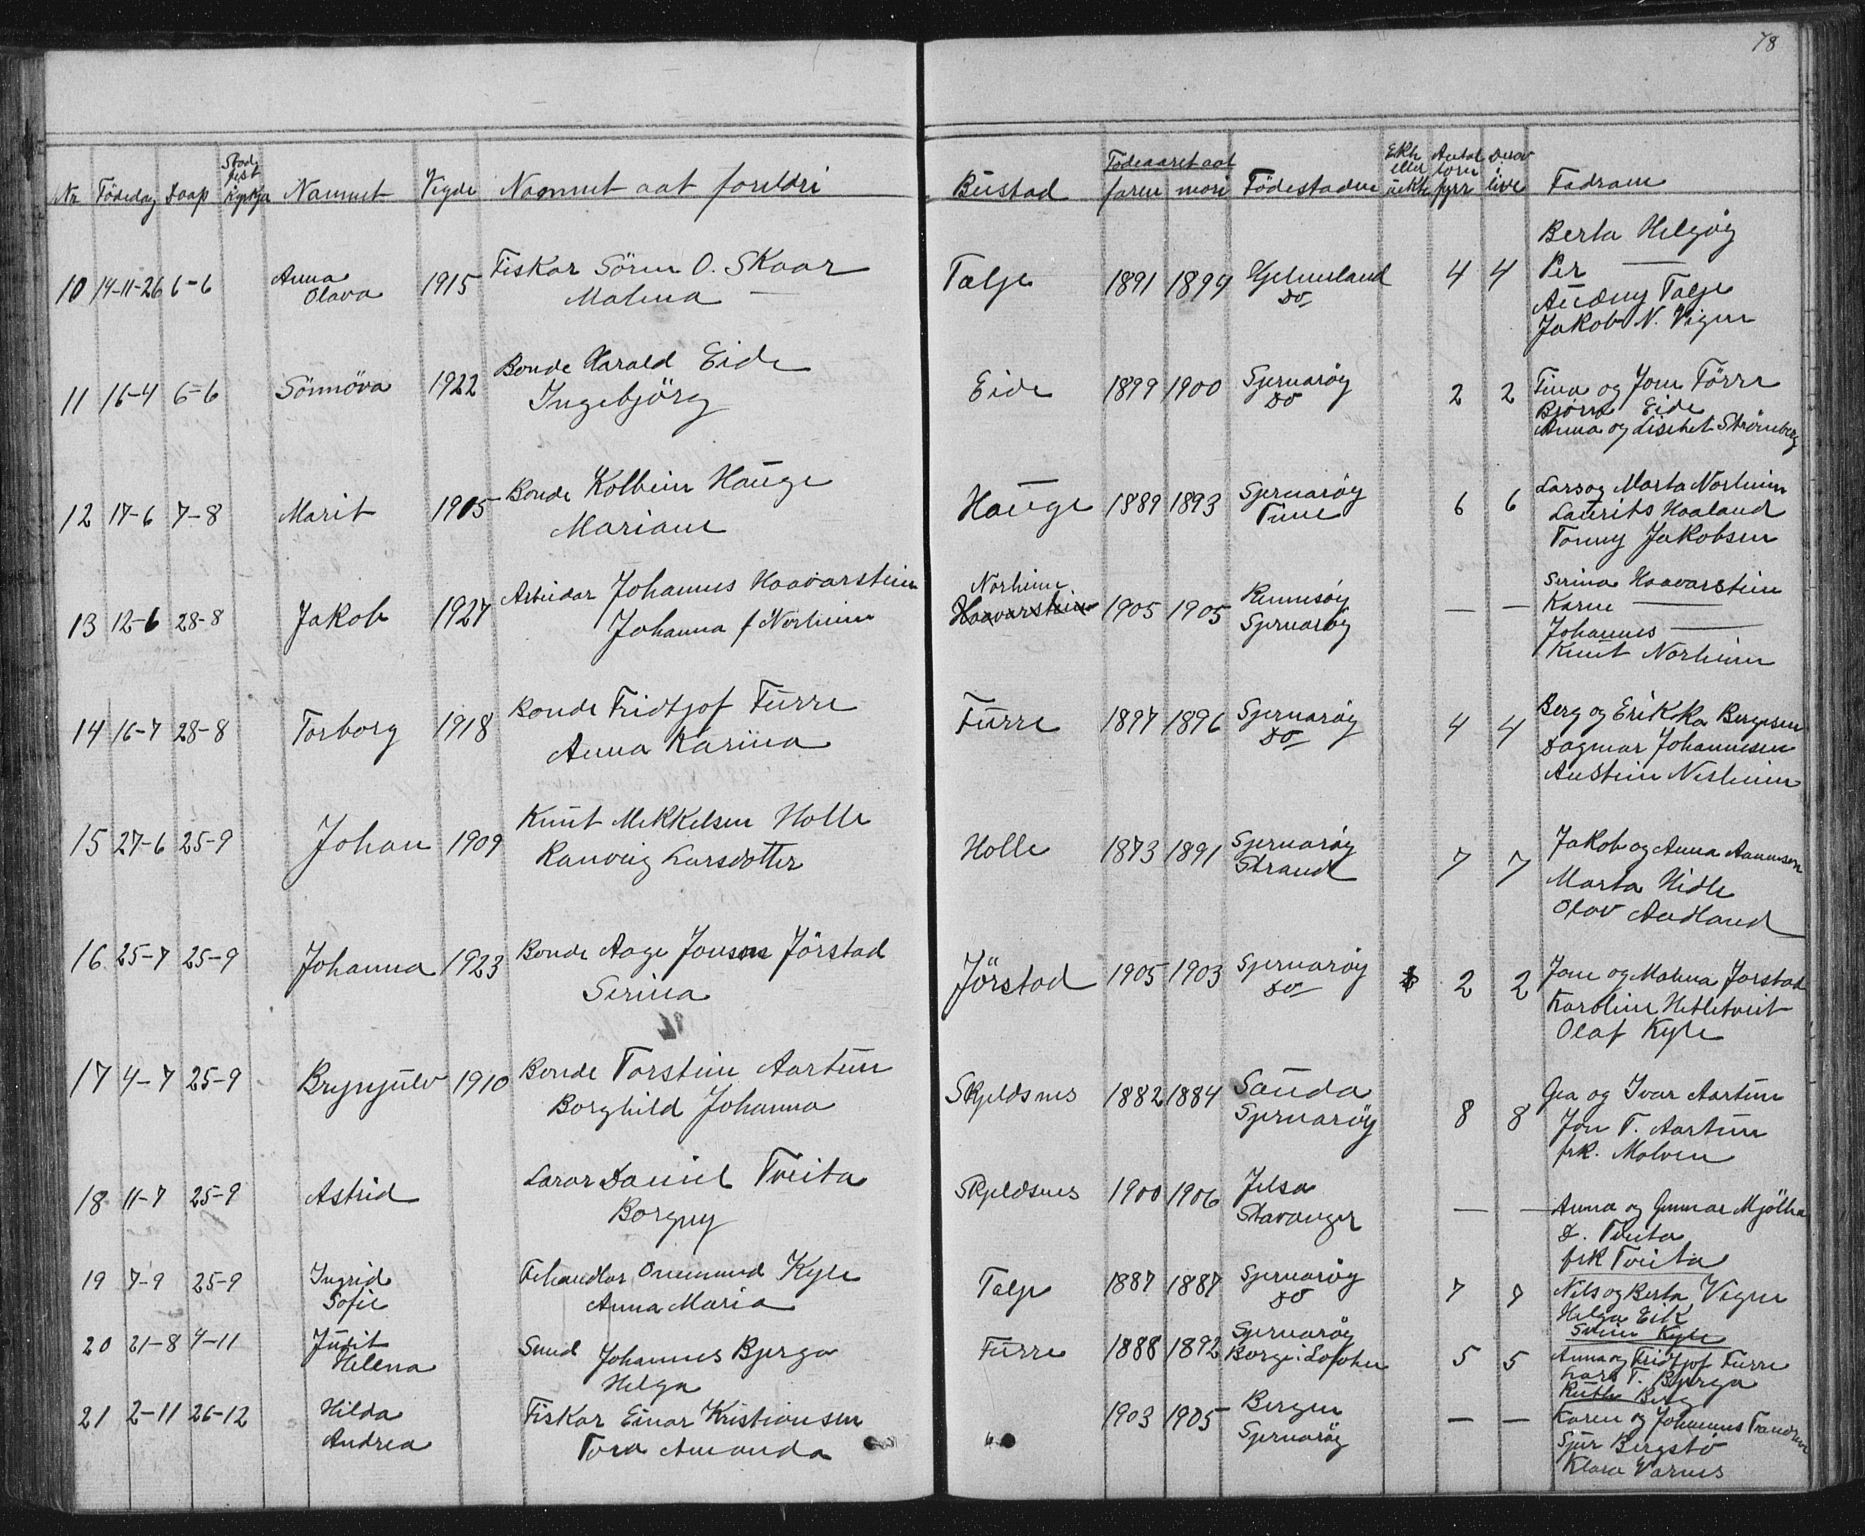 78
Nr Födedag Daap Stadfest Kyrkja Namnet Vigde Namnet aat foreldri Bustad Födeaaret aat faren mori Födestaden Ekh. eller uekh. Antal born fyrr Derav i live Fadrane
10 14-11-26 6-6 Anna Olava 1915 Fiskar Sören O. Skaar Talje 1891 1899 Hjelmeland 4 4 Berta Helgöy
Malena — Do Per —
Audeny Talje
Jakob N. Vigen
11 16-4 6-6 Sönnöva 1922 Bonde Harald Eide Eide 1899 1900 Sjernaröy 2 2 Tina og Jone Förre
Ingebjörg Do Björn Eide
Anna og Lisebet Strömberg
12 17-6 7-8 Marit 1915 Bonde Kolbein Hauge Hauge 1889 1893 Sjernaröy 6 6 Lars og Marta Norheim
Mariane Time Laurits Haaland
Tonny Jakobsen
13 12-6 28-8 Jakob 1927 Arbeidar Johannes Haavarstein Norheim 1905 1905 Rennesöy — — Serina Haavarstein
Johanna f Norheim Haavarstein Sjernaröy Karen —
Johannes —
Knut Norheim
14 16-7 28-8 Torborg 1918 Bonde Fridtjof Furre Furre 1897 1896 Sjernaröy 4 4 Berg og Erikka Bergesen
Anna Karina Do Dagmar Johannesen
Austein Nesheim
15 27-6 25-9 Johan 1909 Knut Mekkelsen Holle Holle 1873 1891 Sjernaröy 7 7 Jakob og Anna Aanensen
Ranveig Larsdotter Strand Marta Hidle
Olav Aadland
16 25-7 25-9 Johanna 1923 Bonde Aage Jonsen Jörstad Jörstad 1905 1903 Sjernaröy 2 2 Jone og Malena Jorstad
Serina Do Karoline Hetletveit
Olaf Kyle
17 4-7 25-9 Brynjulv 1910 Bonde Torstein Aartun Skjeldsnes 1882 1884 Sauda 8 8 Gea og Ivar Aartun
Borghild Johanna Sjernaröy Jon T. Aartun
frk. Malven
18 11-7 25-9 Astrid Lærar Daniel Tveita Skjeldsnes 1900 1906 Jelsa — — Anna og Gunnar Mjölhu
Borgny Stavanger D. Tveita
frk Tveita
19 7-9 25-9 Ingrid Sofie Fehandlar Onemund Kyle Talje 1887 1887 Sjernaröy 7 7 Nils og Berta Vigen
Anna Maria Do Helga Eik
Svein Kyle
20 21-8 4-11 Judit Helena Smed Johannes Bjerga Furre 1888 1892 Sjernaröy 5 5 Anna og Fridtjof Furre
Helga Borge i Lofoten Lars T. Bjerga
Ruth Berg
21 2-11 26-12 Hilda Andrea Fiskar Einar Kristiansen 1903 1905 Bergen — — Karen og Johannes
Tora Amanda Sjernaröy Sjur Bergstö
Klara Varnes